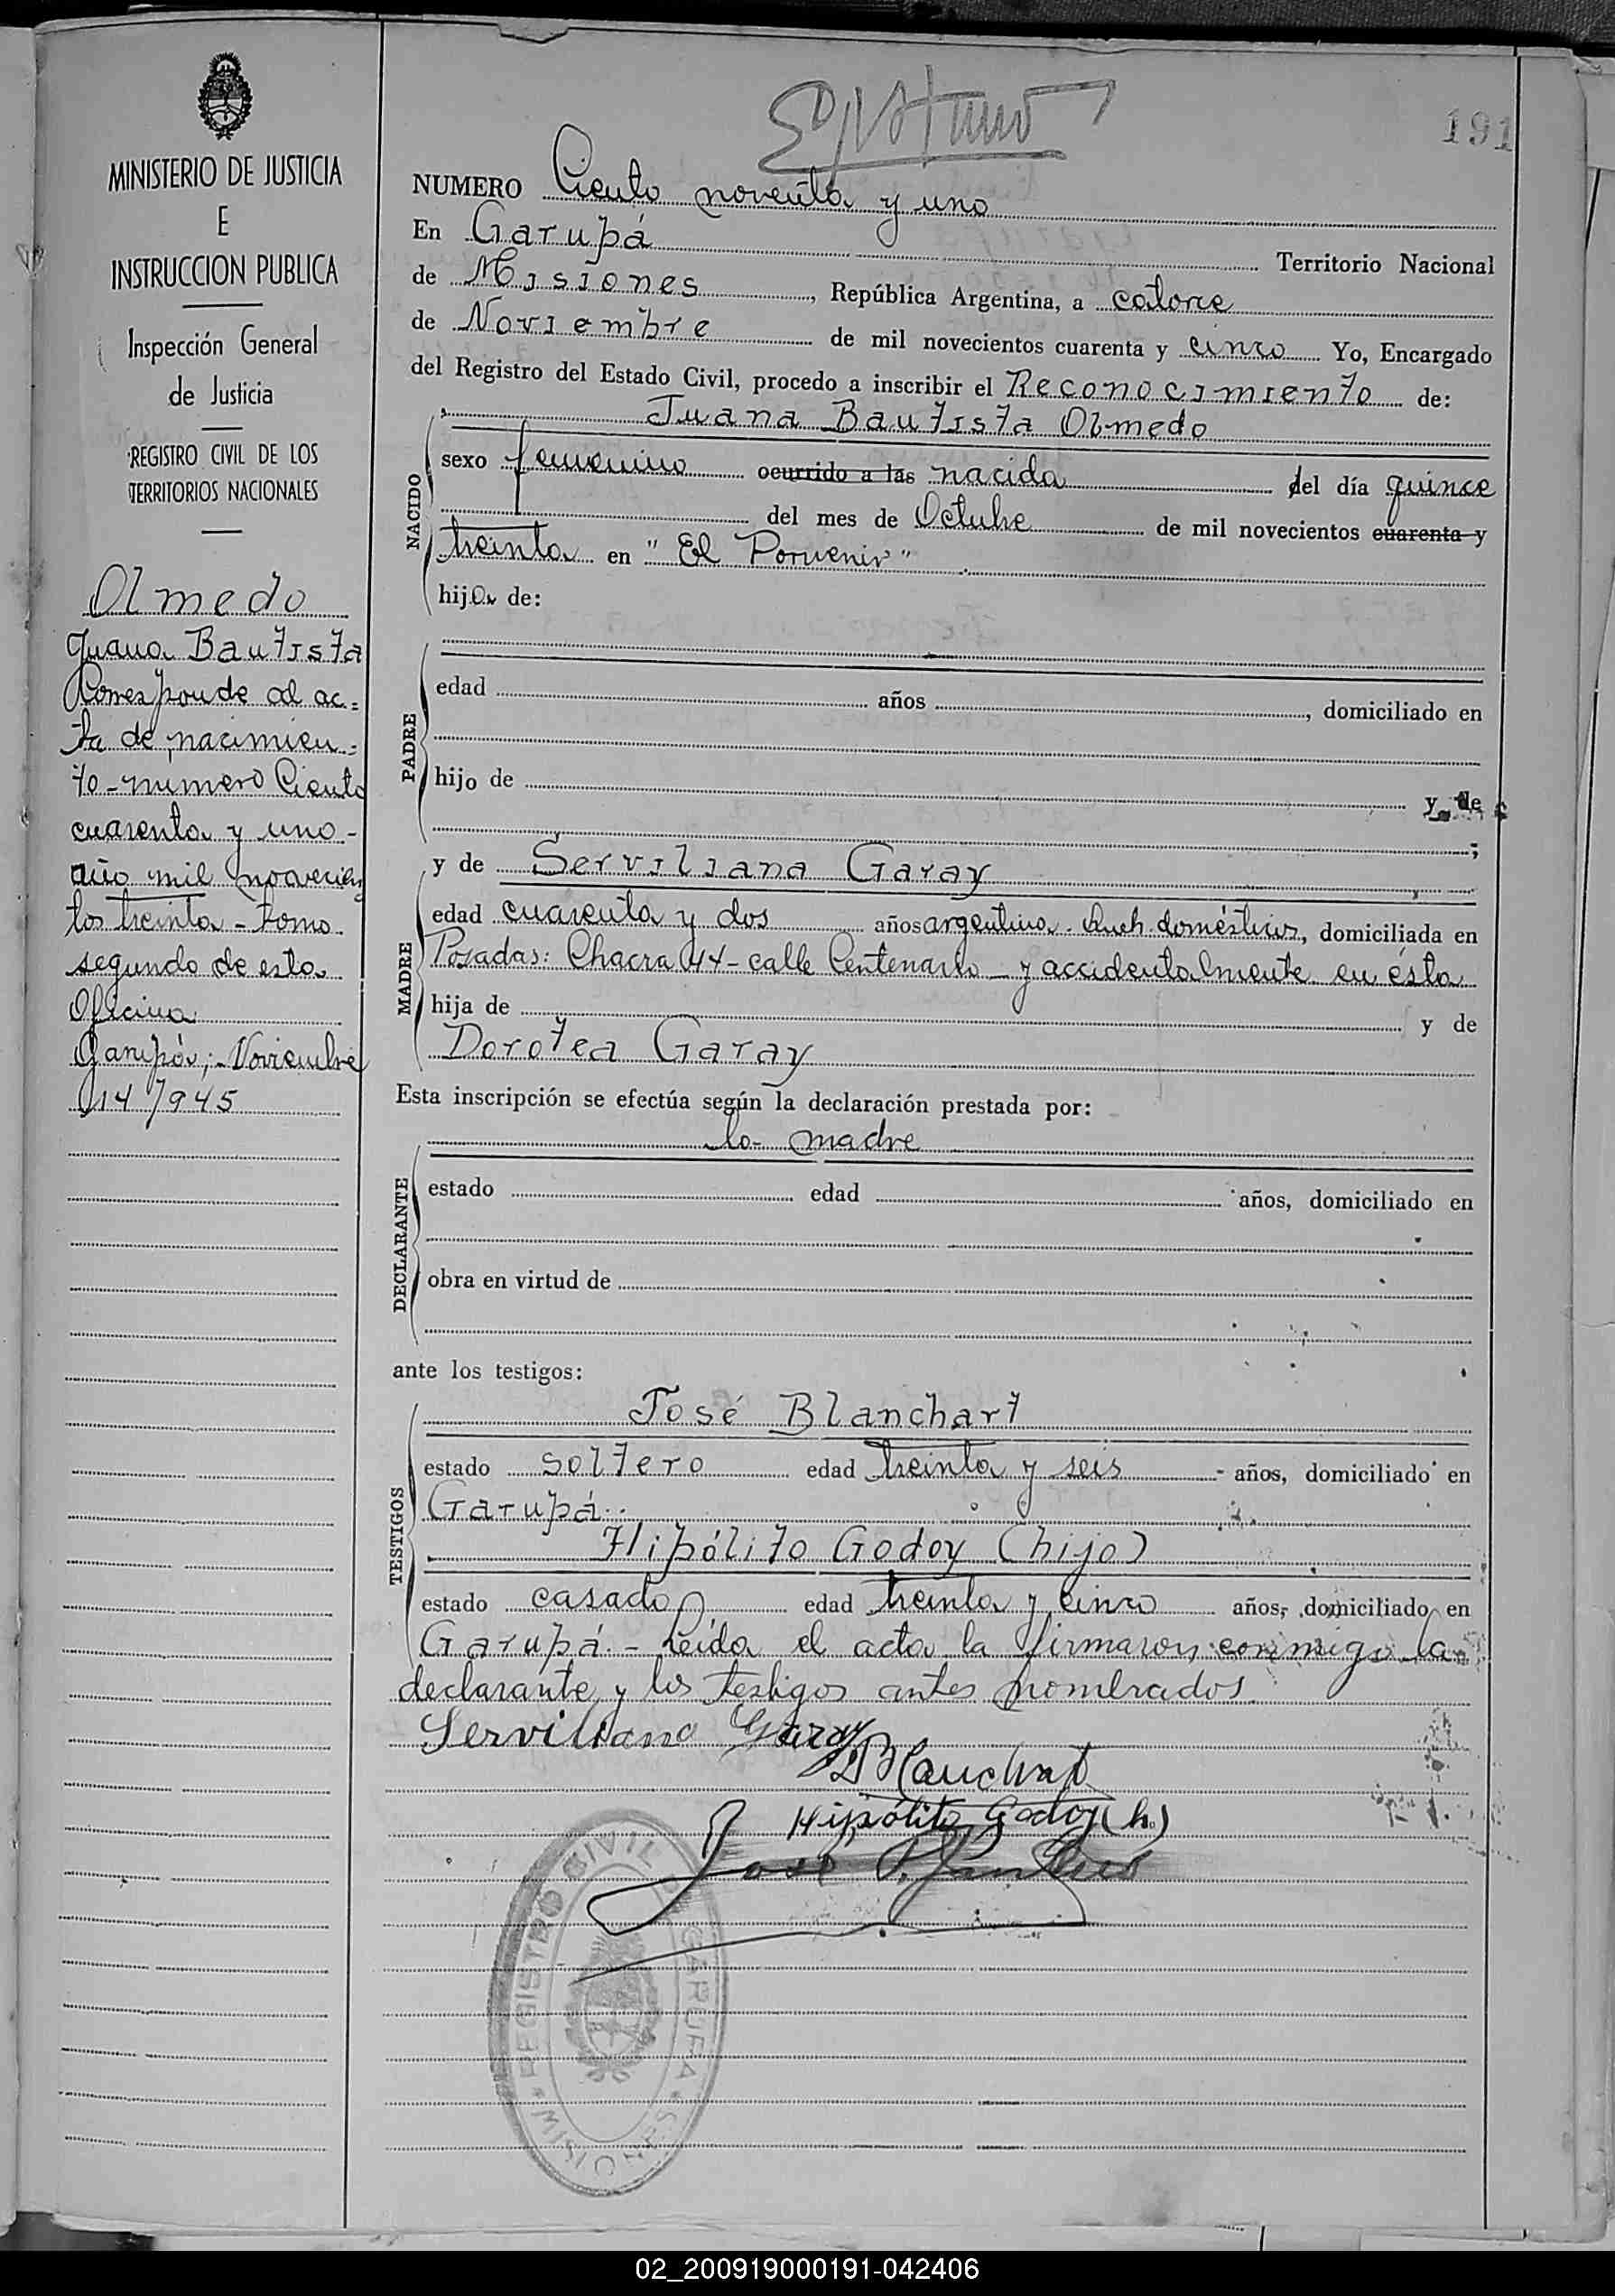 191
MINISTERIO DE JUSTICIA
E
INSTRUCCION PUBLICA
Inspección General
de Justicia
REGISTRO CIVIL DE LOS
TERRITORIOS NACIONALES
Olmedo
Juana Bautista
Corresponde al ac=
ta de nacimien=
to - numero Ciento
cuarenta y uno -
año mil novecien
tos treinta - Tomo
segundo de esta
Oficina
Garupá; Noviembre
14/945
NUMERO Ciento noventa y uno
En Garupá Territorio Nacional
de Misiones, República Argentina, a catorce
de Noviembre de mil novecientos cuarenta y cinco Yo, Encargado
del Registro del Estado Civil, procedo a inscribir el Reconocimiento de:
Juana Bautista Olmedo
NACIDO
sexo femenino ocurrido a las nacida del día quince
del mes de Octubre de mil novecientos cuarenta y
treinta en "El Porvenir"
hija de:
PADRE
edad años, domiciliado en
hijo de y de
;
MADRE
y de Serviliana Garay
edad cuarenta y dos años argentina. Queh. domésticos, domiciliada en
Posadas: Chacra 44 - calle Centenario - y accidentalmente en ésta
hija de y de
Dorotea Garay
Esta inscripción se efectúa según la declaración prestada por:
la madre
DECLARANTE
estado edad años, domiciliado en
obra en virtud de
ante los testigos:
TESTIGOS
José Blanchart
estado soltero edad treinta y seis - años, domiciliado en
Garupá.
Hipólito Godoy (hijo)
estado casado edad treinta y cinco años, domiciliado en
Garupá. - Leída el acta la firmaron conmigo la
declarante y los testigos antes nombrados
Serviliana Garay
Blanchart
Hipólito Godoy (h)
Jose P.
REGISTRO CIVIL DE GARUPA
* MISIONES *
02_200919000191-042406